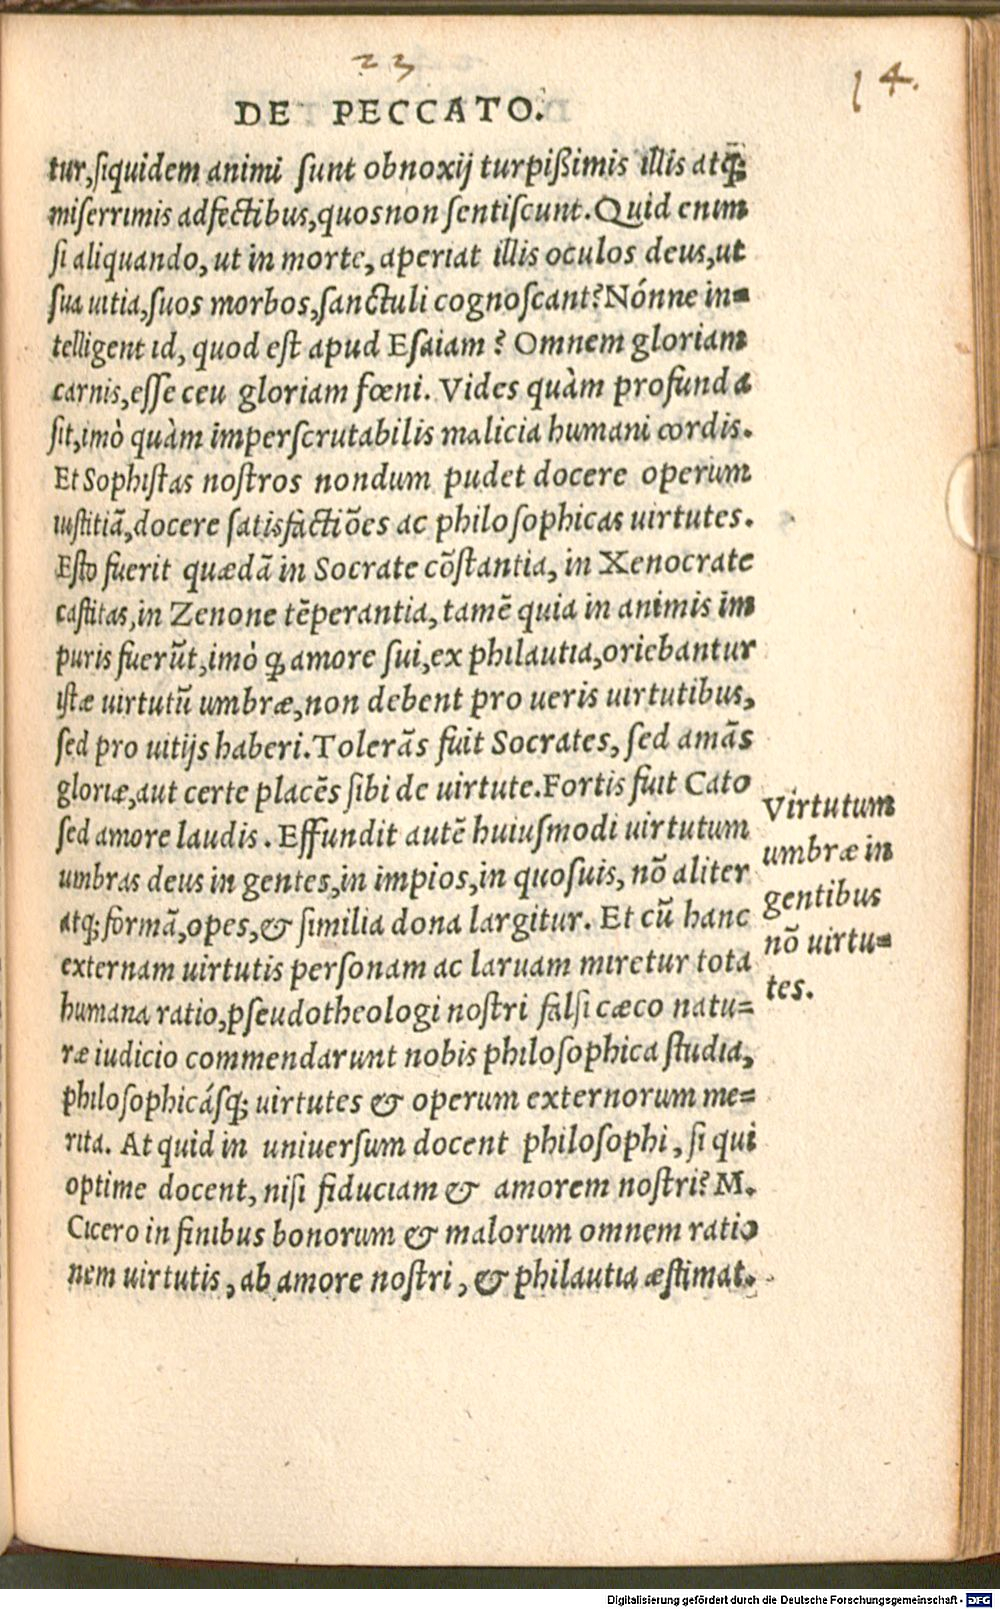 23
14.
DE PECCATO.
tur,siquidem animi sunt obnoxij turpißimis illis atq́;
miserrimis adfectibus,quos non sentiscunt. Quid enim
si aliquando, ut in morte, aperiat illis oculos deus,ut
sua uitia,suos morbos,sanctuli cognoscant? Nónne in=
telligent id, quod est apud Esaiam? Omnem gloriam
carnis,esse ceu gloriam fœni. Vides quàm profunda
sit,imò quàm imperscrutabilis malicia humani cordis.
Et Sophistas nostros nondum pudet docere operum
iustitiã,docere satisfactiões ac philosophicas uirtutes.
Esto fuerit quædã in Socrate cõstantia, in Xenocrate
castitas,in Zenone tẽperantia, tamẽ quia in animis im
puris fuerũt,imò ꝙ amore sui,ex philautia,oriebantur
istæ uirtutũ umbræ,non debent pro ueris uirtutibus,
sed pro uitijs haberi. Tolerãs fuit Socrates, sed amãs
gloriæ,aut certe placẽs sibi de uirtute. Fortis fuit Cato
sed amore laudis. Effundit autẽ huiusmodi uirtutum
umbras deus in gentes,in impios,in quosuis, nõ aliter
atq; formã,opes,& similia dona largitur. Et cũ hanc
externam uirtutis personam ac laruam miretur tota
humana ratio,pseudotheologi nostri falsi cæco natu=
ræ iudicio commendarunt nobis philosophica studia,
philosophicásq; uirtutes & operum externorum me=
rita. At quid in uniuersum docent philosophi, si qui
optime docent, nisi fiduciam & amorem nostri? M.
Cicero in finibus bonorum & malorum omnem ratio
nem uirtutis, ab amore nostri, & philautia æstimat.
Virtutum
umbræ in
gentibus
nõ uirtu=
tes.
Digitalisierung gefördert durch die Deutsche Forschungsgemeinschaft - DFG